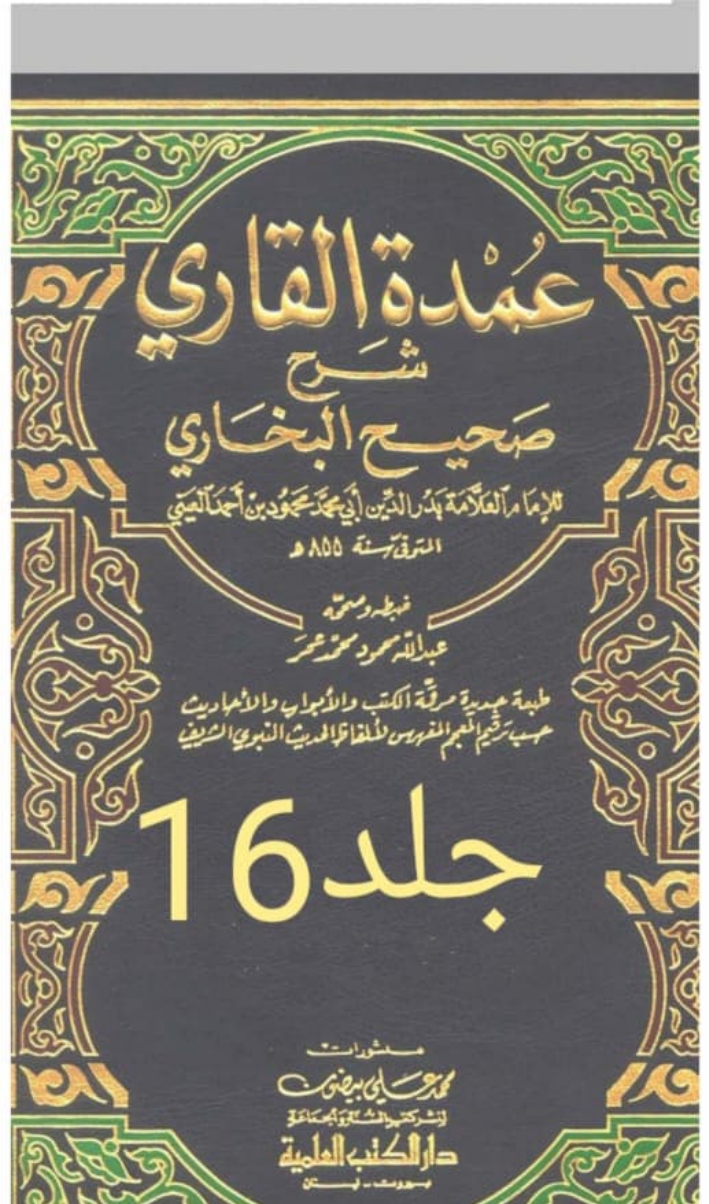 عُمْدة القاري
شَرح
صَحيح البخَاري
للإمَام العَلّامَة بَدْر الدِّين أَبي محمَّد محمُود بن أحمَد العَيني
المتوفى سَنة ٨٥٥ هـ
ضبطه وصححه
عبدالله محمود محمّد عمَر
طبعة جديدة مرقّمة الكتب والأبواب والأحاديث
حسب ترقيم المعجم المفهرس لألفاظ الحديث النبوي الشريف
جلد16
منشورات
محمد عَلي بيضون
لنشر كتب السُّنَّة وَالجمَاعَة
دار الكتب العلمية
بيروت - لبنان